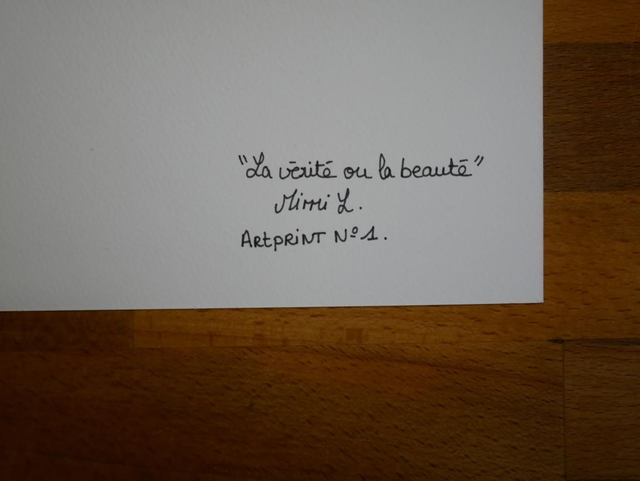 "La vérité ou la beauté"
Mimi L.
ARTPRINT Nº1.